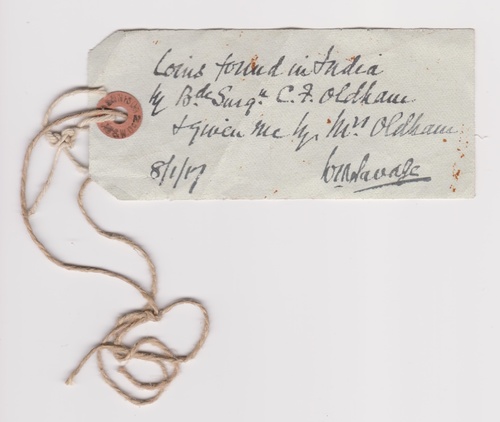 Coins found in India
by Bde Surgn C. F. Oldham
& given me by Mrs Oldham
8/1/17 WmSavage